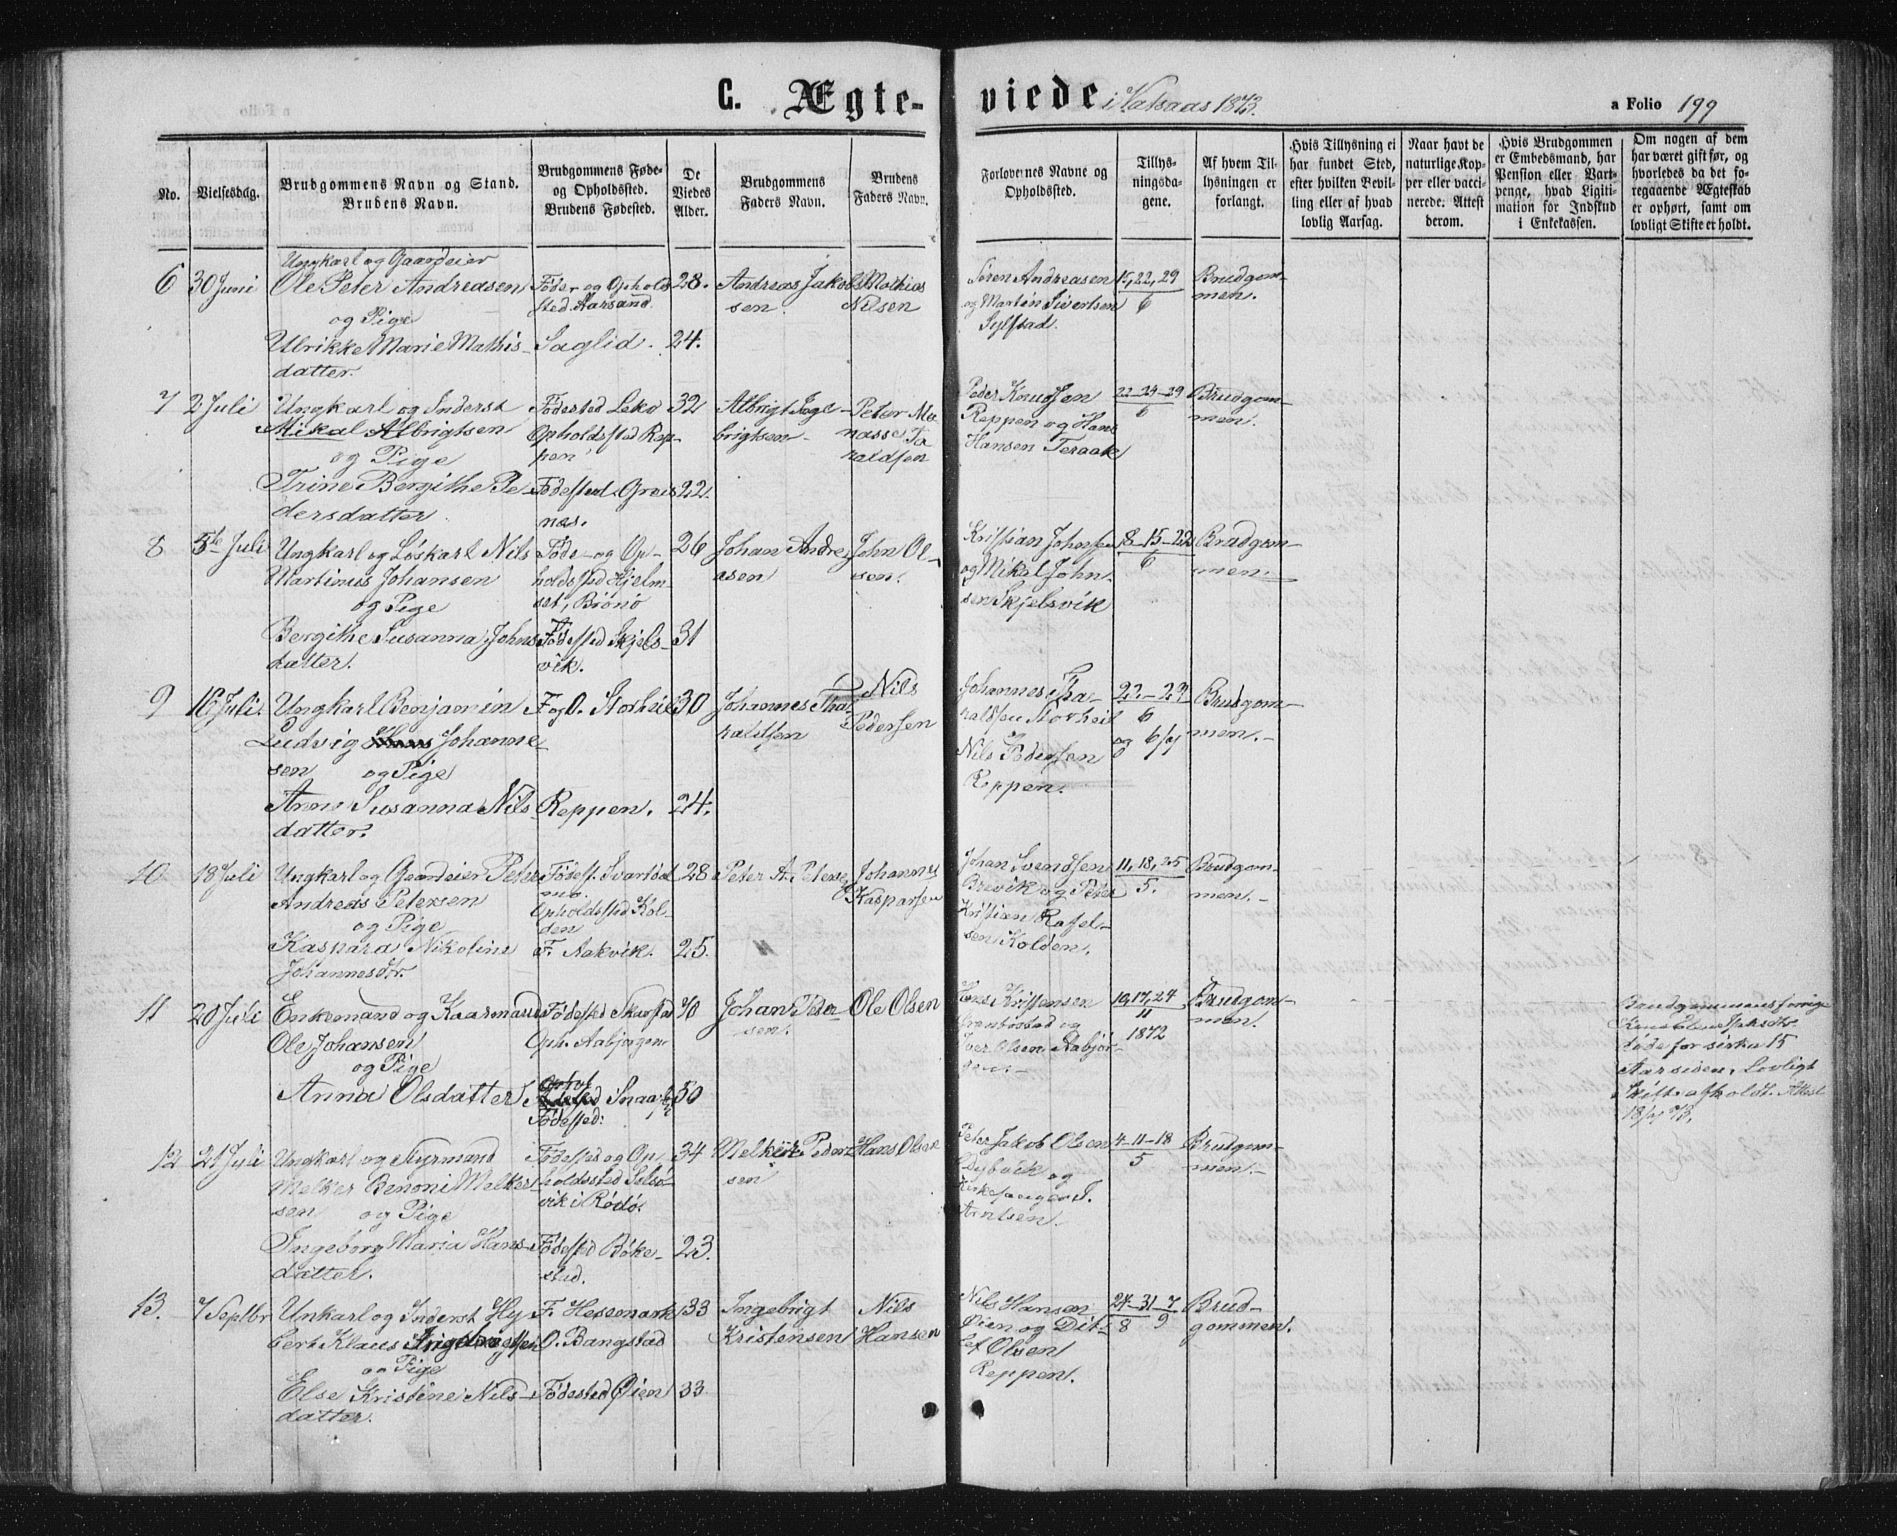 C. Ægte-viede i Vatsaas 1873. a Folio 199
No.
Vielsesdag.
Brudgommens Navn og Stand.
Brudens Navn.
Brudgommens Føde-
og Opholdssted.
Brudens Fødested.
De
Viedes
Alder.
Brudgommens
Faders Navn.
Brudens
Faders Navn.
Forlovernes Navne og
Opholdssted.
Tillys-
ningsda-
gene.
Af hvem Til-
lysningen er
forlangt.
Hvis Tillysning ei
har fundet Sted,
efter hvilken Bevil-
ling eller af hvad
lovlig Aarsag.
Naar havt de
naturlige Kop-
per eller vacci-
nerede. Attest
derom.
Hvis Brudgommen
er Embedsmand, har
Pension eller Vart-
penge, hvad Ligiti-
mation for Indskud
i Enkekassen.
Om nogen af dem
har været gift før, og
hvorledes da det fo-
regaaende Ægteskab
er ophørt, samt om
lovligt Skifte er holdt.
6 30 Juni
Ungkarl og Gaardeier
Ole Peter Andreasen
og Pige
Ulrikke Marie Mathis-
datter.
Føde- og Ophold
sted Aarsand
Saglid.
28.
24.
Andreas Jakob
sen.
Mathias
Nilsen
Søren Andreasen
og Martin Sivertsen
Sylstad.
15, 22, 29
6
Brudgom-
men.
7 2 Juli
Ungkarl og Inderst
Mikal Albrigtsen
og Pige
Trine Bergithe Pe-
dersdatter.
Fødested Leko
Opholdssted Rep-
pen
Fødested Graas
næs.
32
22.
Albrigt Inge-
brigtsen
Peter Ma-
nasse To
raldsen
Peder Knudsen
Reppen og Hans
Hansen Teraak
22-24-29
6
Brudgom-
men.
8 5te Juli
Ungkarl og Løskarl Nils
Martinus Johansen
og Pige
Bergithe Susanna Johns
datter.
Føde- og Op-
holdssted Hjelm-
set, Brønø
Fødested Skjels-
vik.
26
31
Johan Andre-
asen
John Ol-
sen.
Kristian Johnsen
og Mikal John-
sen Skjelsvik
8-15-22
6
Brudgom-
men.
9 16 Juli.
Ungkarl Benjamin
Ludvig Johanne-
sen og Pige
Anne Susanna Nils-
datter.
F. og O. Storheil
Reppen.
30
24.
Johannes Tha-
raldsen
Nils
Pedersen
Johannes Tha-
raldsen Storheil
Nils Pedersen
Reppen.
22-29
6
og 6/7
Brudgom-
men.-
10 18 Juli
Ungkarl og Gaardeier Peter
Andreas Petersen
og Pige
Kaspara Nikoline
Johannesdtr.
Fødest. Svartdal
mo.
Opholdssted Kol-
den
F. Aakvik.
28
25.
Peter A. Petersen
Johannes
Kaspersen
Johan Svendsen
Brevik og Peter
Kristian Rafel-
sen Kolden.
11, 18, 25
5.
Brudgom-
men.-
11 20 Juli
Enkemand og Kaarmand
Ole Johansen
og Pige
Anna Olsdatter
Fødested Skarstad
Oph. Aabjørgen
Ophol
sted Snaa
Fødested:
70
50
Johan Peder-
sen.
Ole Olsen
Hans Kristensen
og
Iver Olsen Aabjør-
gen.-
10, 17, 24
11
1872
Brudgom-
men.
Brudgommens forrige
Kone Elen
døde for sirka 15
Aar siden. Lovligt
Skifte afholdt. Attest
18/7 73.
12 21 Juli
Ungkarl og Styrmand
Melker Benoni Melker-
sen og Pige
Ingeborg Maria Hans-
datter.
Fødested og Op
holdssted Selsø-
vik i Rødø.
Fødested Bøke-
stad.
34
23.
Melkior Peder-
sen
Hans Olsen
Peter Jakob Olsen
Dybvik og
Kirkesanger J.
Arntsen.
4-11-18
5
Brudgom-
men.-
13. 7 Septbr
Unkarl og Inderst Hy-
bert Klaus Ingebrigtsen
og Pige
Else Kristine Nils-
datter.
F. Hessemark
O. Bangstad
Fødested Øien
33
33
Ingebrigt
Kristensen
Nils
Hansen
Nils Hansen
Øien og Dit-
lef Olsen
Reppen.
24-31-7
8 9
Brud-
gommen.